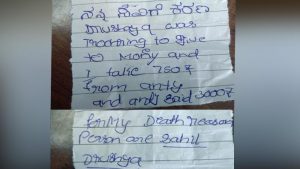 ನನ್ನ ಸಾವಿಗೆ ಕಾರಣ
Drushya was
morning to give
to Mony and
I take 750₹
from anty
and anty said 3000₹
for My Death reason
Person are Sahil
Drushya